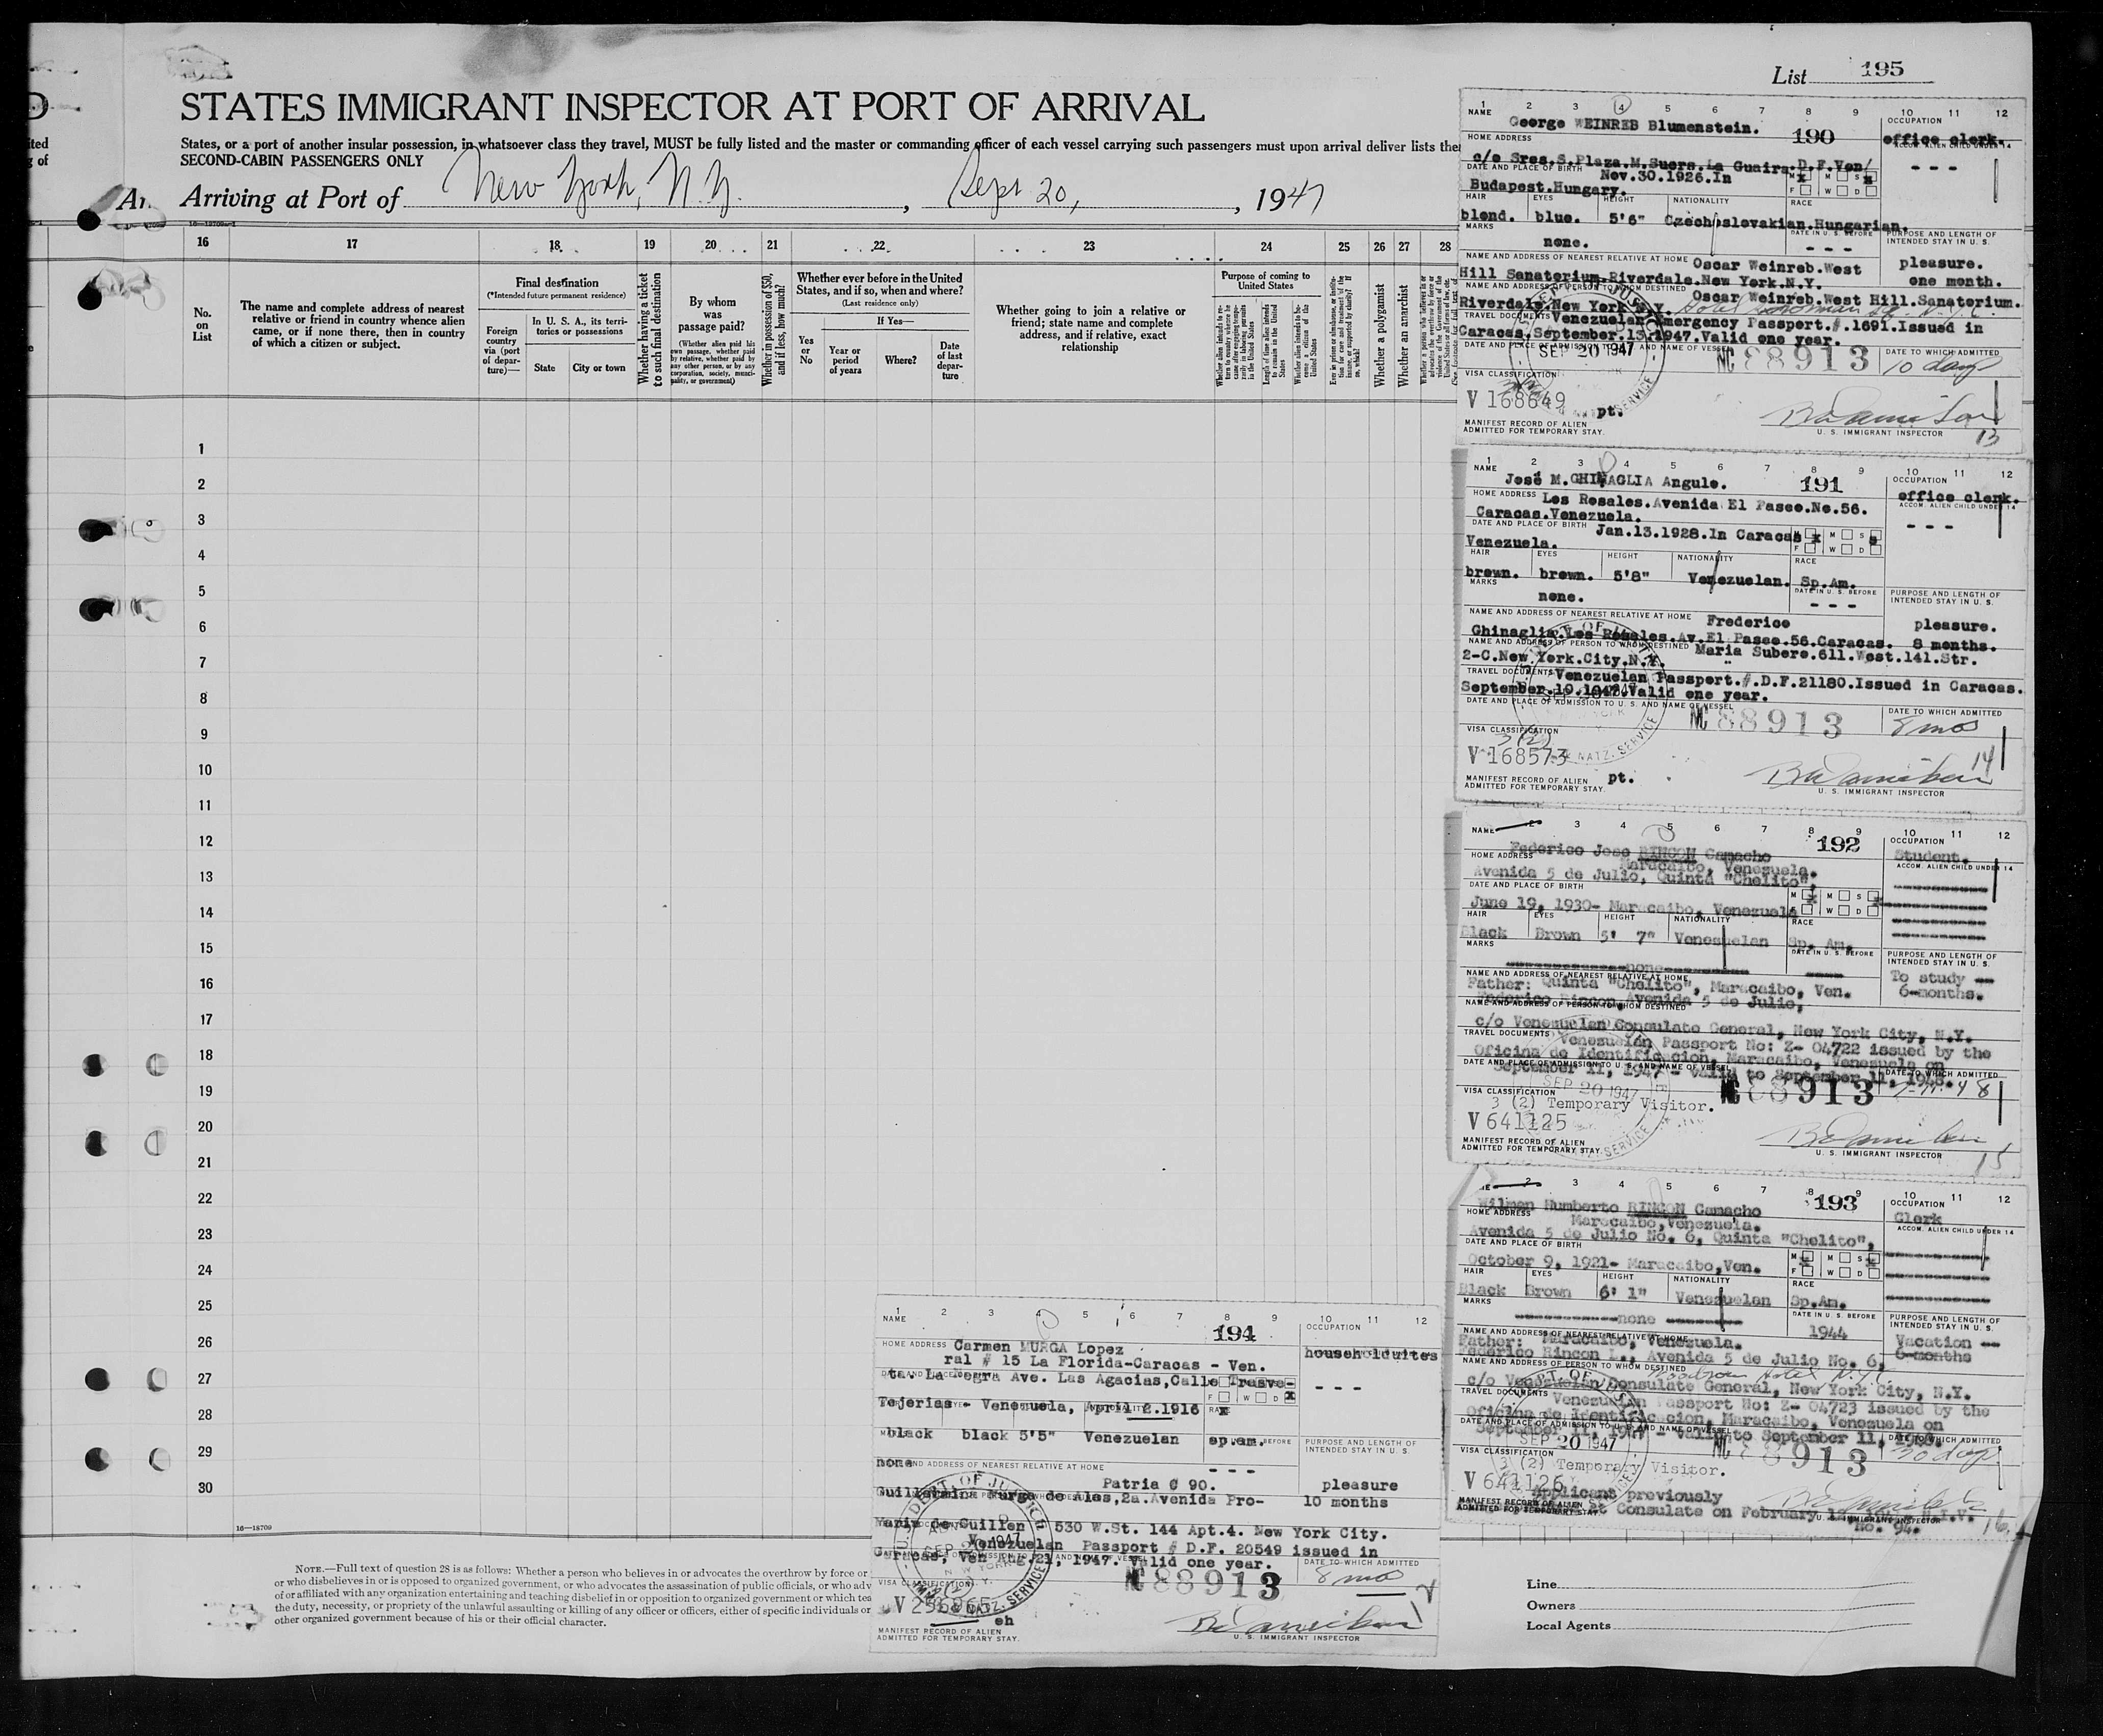 List 195
STATES IMMIGRANT INSPECTOR AT PORT OF ARRIVAL
States, or a port of another insular possession, in whatsoever class they travel, MUST be fully listed and the master or commanding officer of each vessel carrying such passengers must upon arrival deliver lists
SECOND-CABIN PASSENGERS ONLY
Arriving at Port of New York, N.Y. , Sept 20, , 1947
16 17 18 19 20 21 22 23 24 25 26 27 28
No. on List
The name and complete address of nearest relative or friend in country whence alien came, or if none there, then in country of which a citizen or subject.
Final destination
(*Intended future permanent residence)
Foreign country via (port of departure)—
In U. S. A., its territories or possessions
State
City or town
Whether having a ticket to such final destination
By whom was passage paid?
(Whether alien paid his own passage, whether paid by relative, whether paid by any other person, or by any corporation, society, municipality, or government)
Whether in possession of $50, and if less, how much?
Whether ever before in the United States, and if so, when and where?
(Last residence only)
Yes or No
If Yes—
Year or period of years
Where?
Date of last departure
Whether going to join a relative or friend; state name and complete address, and if relative, exact relationship
Purpose of coming to United States
Whether a polygamist
Whether an anarchist
1
2
3
4
5
6
7
8
9
10
11
12
13
14
15
16
17
18
19
20
21
22
23
24
25
26
27
28
29
30
16—18709
NOTE.—Full text of question 28 is as follows: Whether a person who believes in or advocates the overthrow by force or
or who disbelieves in or is opposed to organized government, or who advocates the assassination of public officials, or who
of or affiliated with any organization entertaining and teaching disbelief in or opposition to organized government or which
the duty, necessity, or propriety of the unlawful assaulting or killing of any officer or officers, either of specific individuals or
other organized government because of his or their official character.
1 2 3 4 5 6 7 8 9 10 11 12
NAME George WEINREB Blumenstein. 190
OCCUPATION office clerk.
HOME ADDRESS
c/o Sres.S.Plaza.M.Sucrs.La Guaira.D.F.Ven/
DATE AND PLACE OF BIRTH Nov.30.1926.In
Budapest.Hungary.
HAIR EYES HEIGHT NATIONALITY RACE
blond. blue. 5'6" Czechoslovakian.Hungarian.
MARKS none.
DATE IN U. S. BEFORE - - -
PURPOSE AND LENGTH OF INTENDED STAY IN U. S.
pleasure.
one month.
NAME AND ADDRESS OF NEAREST RELATIVE AT HOME Oscar Weinreb.West
Hill Sanatorium.Riverdale.New York.N.Y.
NAME AND ADDRESS OF PERSON TO WHOM DESTINED Oscar Weinreb.West Hill.Sanatorium.
Riverdale.New York N.Y.
TRAVEL DOCUMENTS Venezuelan Emergency Passport.#.1691.Issued in
Caracas.September.13.1947.Valid one year.
DATE AND PLACE OF ADMISSION TO U. S. AND NAME OF VESSEL
SEP 20 1947
88913
DATE TO WHICH ADMITTED 10 days
VISA CLASSIFICATION
V 168649 pt.
MANIFEST RECORD OF ALIEN
ADMITTED FOR TEMPORARY STAY.
U. S. IMMIGRANT INSPECTOR 13
1 2 3 4 5 6 7 8 9 10 11 12
NAME José M.GHINAGLIA Angulo. 191
OCCUPATION office clerk.
HOME ADDRESS Los Rosales.Avenida El Paseo.No.56.
Caracas.Venezuela.
DATE AND PLACE OF BIRTH Jan.13.1928.In Caracas
Venezuela.
HAIR EYES HEIGHT NATIONALITY RACE
brown. brown. 5'8" Venezuelan. Sp.Am.
MARKS none.
DATE IN U. S. BEFORE - - -
PURPOSE AND LENGTH OF INTENDED STAY IN U. S.
NAME AND ADDRESS OF NEAREST RELATIVE AT HOME Frederico pleasure.
Ghinaglia.Los Rosales.Av.El Paseo.56.Caracas. 8 months.
NAME AND ADDRESS OF PERSON TO WHOM DESTINED Maria Subero.611.West.141.Str.
2-C.New York.City.N.Y.
TRAVEL DOCUMENTS Venezuelan Passport.#.D.F.21180.Issued in Caracas.
September.10.1947.Valid one year.
DATE AND PLACE OF ADMISSION TO U. S. AND NAME OF VESSEL
88913
DATE TO WHICH ADMITTED 8 mos
VISA CLASSIFICATION 3 (2)
V 168573 pt.
MANIFEST RECORD OF ALIEN
ADMITTED FOR TEMPORARY STAY.
U. S. IMMIGRANT INSPECTOR 14
NAME 2 3 4 5 6 7 8 9 10 11 12
Federico Jose RINCON Camacho 192
OCCUPATION Student.
HOME ADDRESS Maracaibo, Venezuela.
Avenida 5 de Julio, Quinta "Chelito",
DATE AND PLACE OF BIRTH
June 19, 1930- Maracaibo, Venezuela
HAIR EYES HEIGHT NATIONALITY RACE
Black Brown 5' 7" Venezuelan Sp. Am.
MARKS none
DATE IN U. S. BEFORE
PURPOSE AND LENGTH OF INTENDED STAY IN U. S.
To study --
6-months.
NAME AND ADDRESS OF NEAREST RELATIVE AT HOME
Father: Quinta "Chelito", Maracaibo, Ven.
Federico Rincon Avenida 5 de Julio,
NAME AND ADDRESS OF PERSON TO WHOM DESTINED
c/o Venezuelan Consulate General, New York City, N.Y.
TRAVEL DOCUMENTS Venezuelan Passport No: Z- 04722 issued by the
Oficina de Identificacion, Maracaibo, Venezuela on
September 11, 1947 - Valid to September 11, 1948.
DATE AND PLACE OF ADMISSION TO U. S. AND NAME OF VESSEL
SEP 20 1947
88913
DATE TO WHICH ADMITTED
VISA CLASSIFICATION
3 (2) Temporary Visitor.
V 641125
MANIFEST RECORD OF ALIEN
ADMITTED FOR TEMPORARY STAY.
U. S. IMMIGRANT INSPECTOR 15
2 3 4 5 6 7 8 9 10 11 12
Wilmen Humberto RINCON Camacho 193
OCCUPATION Clerk
HOME ADDRESS Maracaibo,Venezuela.
Avenida 5 de Julio No. 6, Quinta "Chelito",
DATE AND PLACE OF BIRTH
October 9, 1921- Maracaibo,Ven.
HAIR EYES HEIGHT NATIONALITY RACE
Black Brown 6' 1" Venezuelan Sp.Am.
MARKS none
DATE IN U. S. BEFORE 1944
PURPOSE AND LENGTH OF INTENDED STAY IN U. S.
Vacation --
6-months
NAME AND ADDRESS OF NEAREST RELATIVE AT HOME
Father: Maracaibo, Venezuela.
Federico Rincon L., Avenida 5 de Julio No. 6,
NAME AND ADDRESS OF PERSON TO WHOM DESTINED
Hotel N.Y.C.
c/o Venezuelan Consulate General, New York City, N.Y.
TRAVEL DOCUMENTS Venezuelan Passport No: Z- 04723 issued by the
Oficina de Identificacion, Maracaibo, Venezuela on
September 11, 1947 - Valid to September 11, 1948.
SEP 20 1947
88913
DATE TO WHICH ADMITTED 30 days
VISA CLASSIFICATION
3 (2) Temporary Visitor.
V 641126
Applicant previously
at Consulate on February
No. 94.
MANIFEST RECORD OF ALIEN
ADMITTED FOR TEMPORARY STAY.
U. S. IMMIGRANT INSPECTOR 16
1 2 3 4 5 6 7 8 9 10 11 12
NAME 194
OCCUPATION
HOME ADDRESS Carmen MURGA Lopez householduites
ral # 15 La Florida-Caracas - Ven.
ta. La Negra Ave. Las Agacias,Calle Trasve-
Tejerias- Venezuela, April 2.1916
black black 5'5" Venezuelan sp.am.
PURPOSE AND LENGTH OF INTENDED STAY IN U. S.
none
NAME AND ADDRESS OF NEAREST RELATIVE AT HOME - - -
Patria C 90. pleasure
Guillermina Murga de Ales,2a.Avenida Pro- 10 months
Maria de Guillen 530 W.St. 144 Apt.4. New York City.
Venezuelan Passport # D.F. 20549 issued in
Caracas, Ven. 21, 1947. Valid one year.
DATE TO WHICH ADMITTED 8 mos
88913
VISA CLASSIFICATION
eh
MANIFEST RECORD OF ALIEN
ADMITTED FOR TEMPORARY STAY.
U. S. IMMIGRANT INSPECTOR
Line
Owners
Local Agents